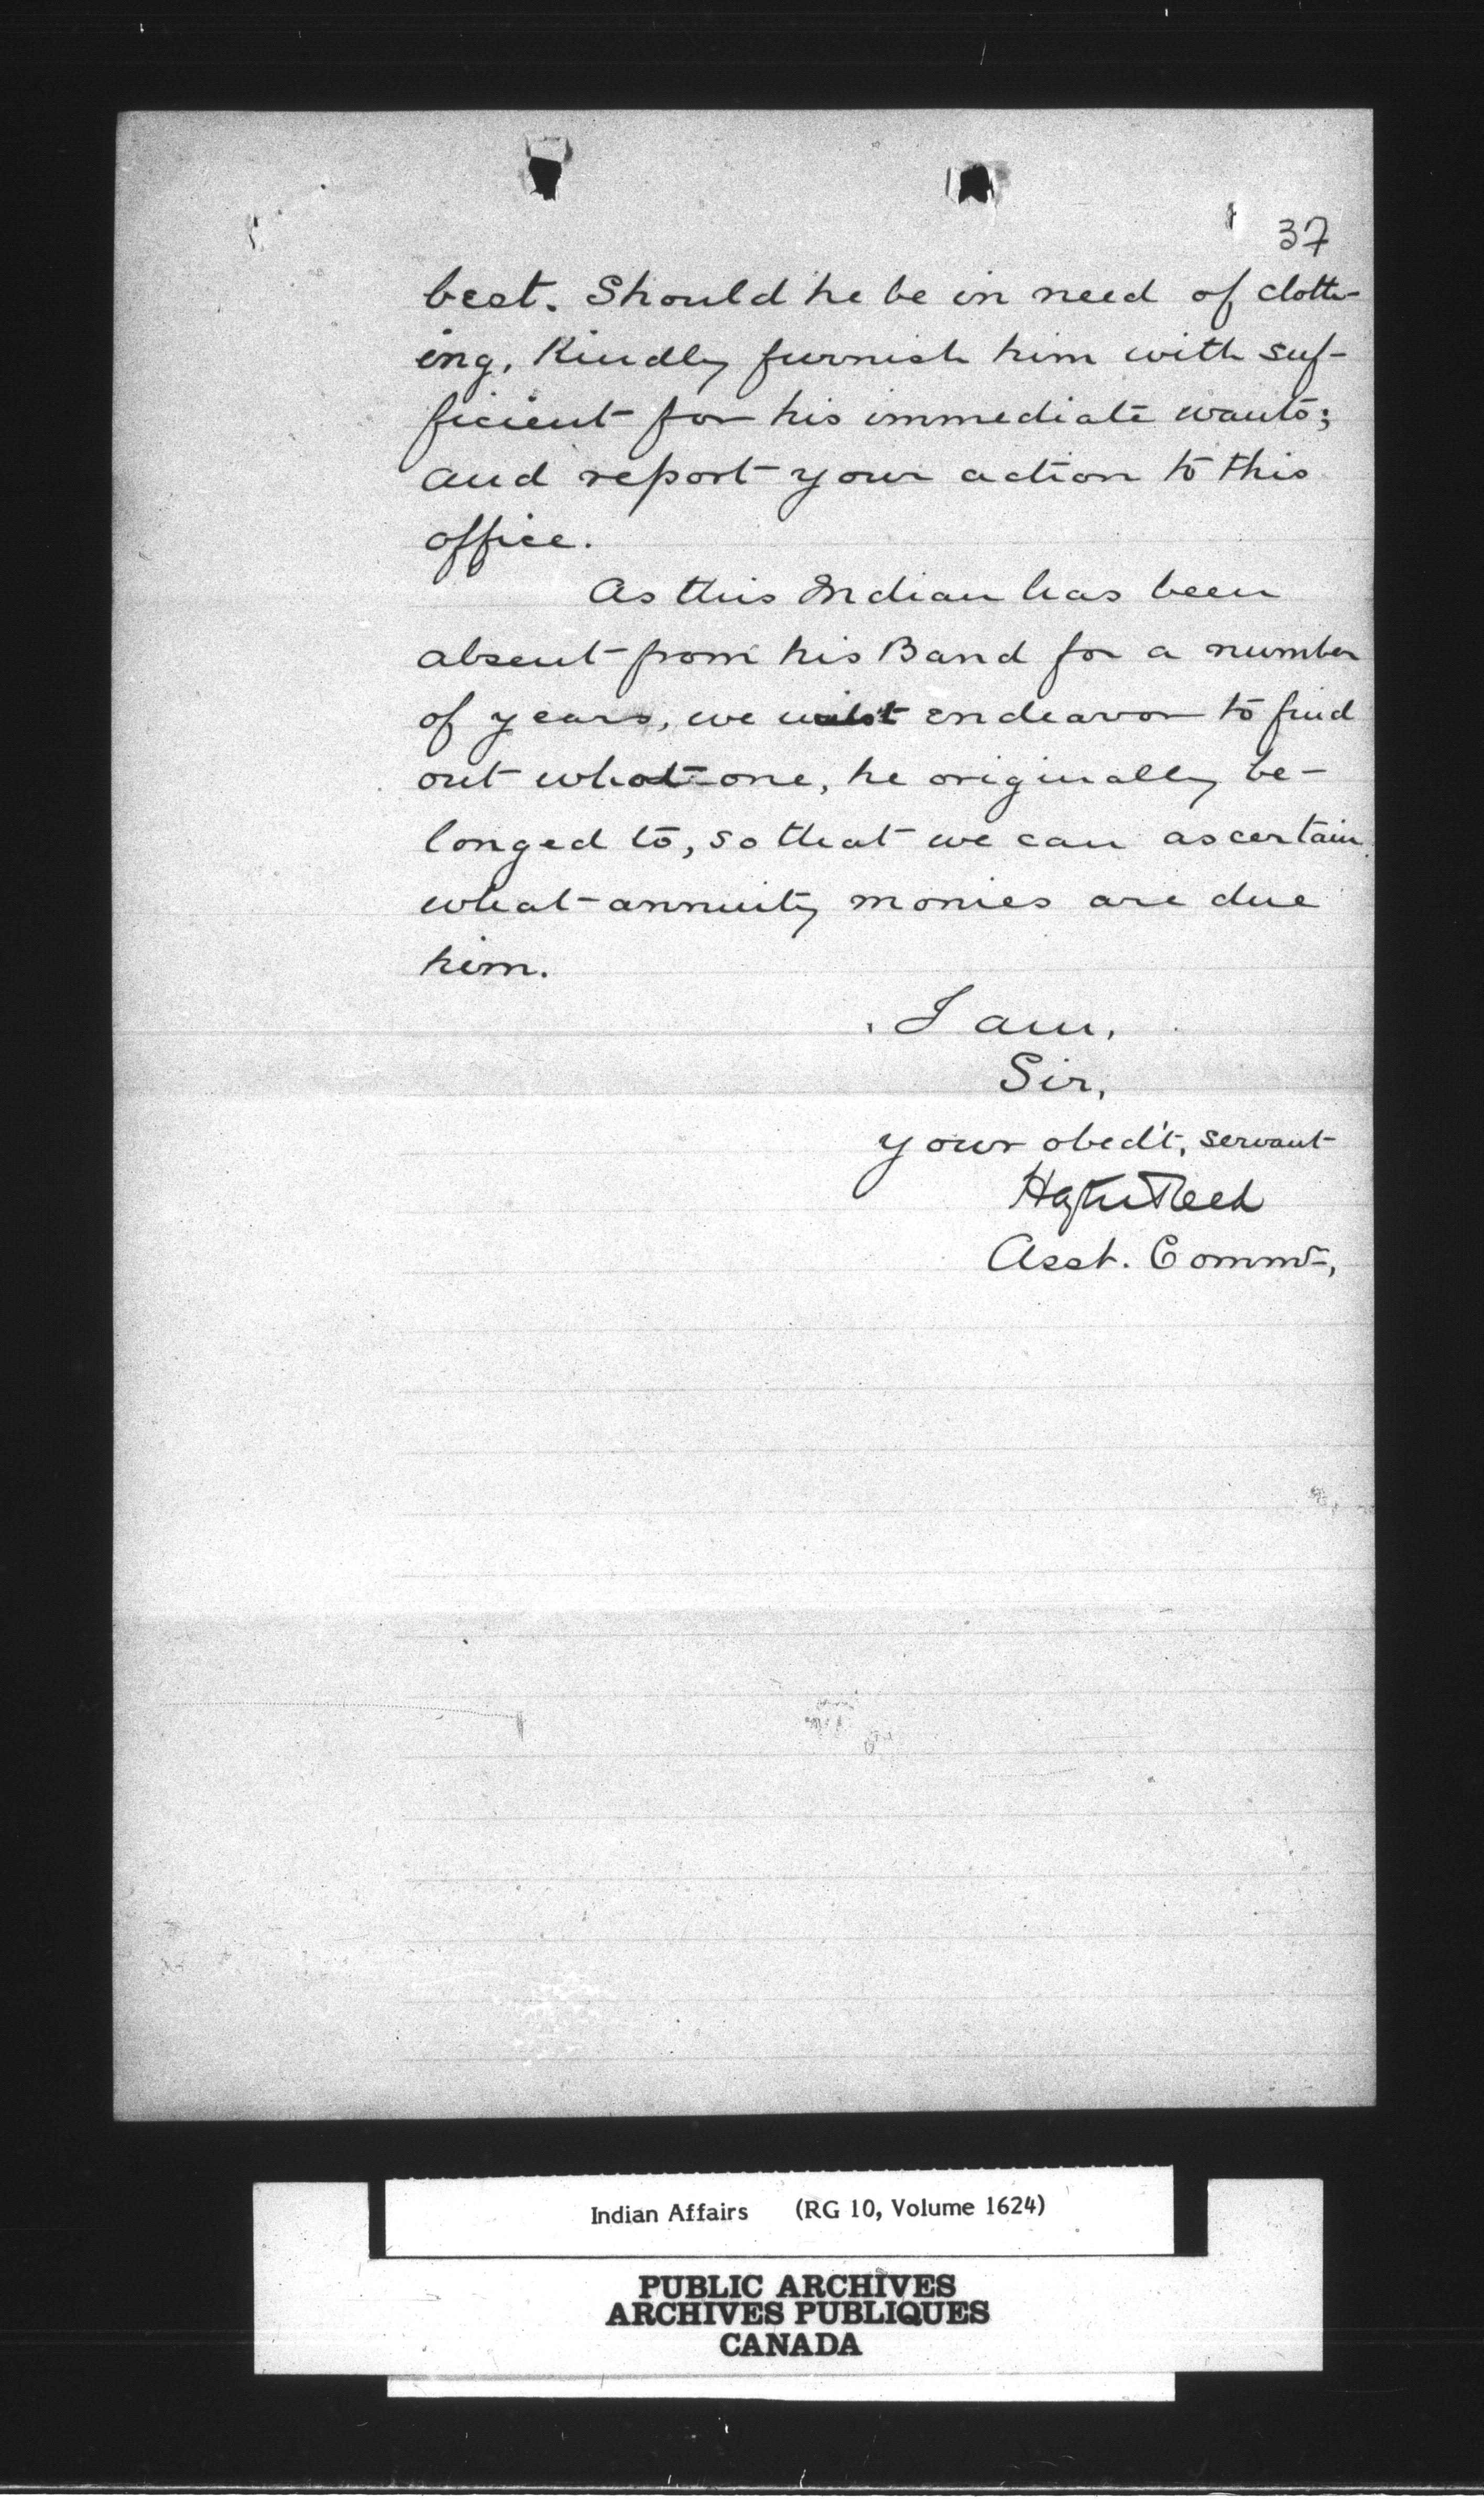 37
best. Should he be in need of cloth-
ing, Kindly furnish him with suf-
ficient for his immediate wants;
and report your action to this
office.
As this Indian has been
absent from his Band for a number
of years, we must endeavor to find
out what one, he originally be-
longed to, so that we can ascertain
what annuity monies are due
him.
I am,
Sir,
your obed't, servant
Hayter Reed
Asst. Commr,
Indian Affairs (RG 10, Volume 1624)
PUBLIC ARCHIVES
ARCHIVES PUBLIQUES
CANADA